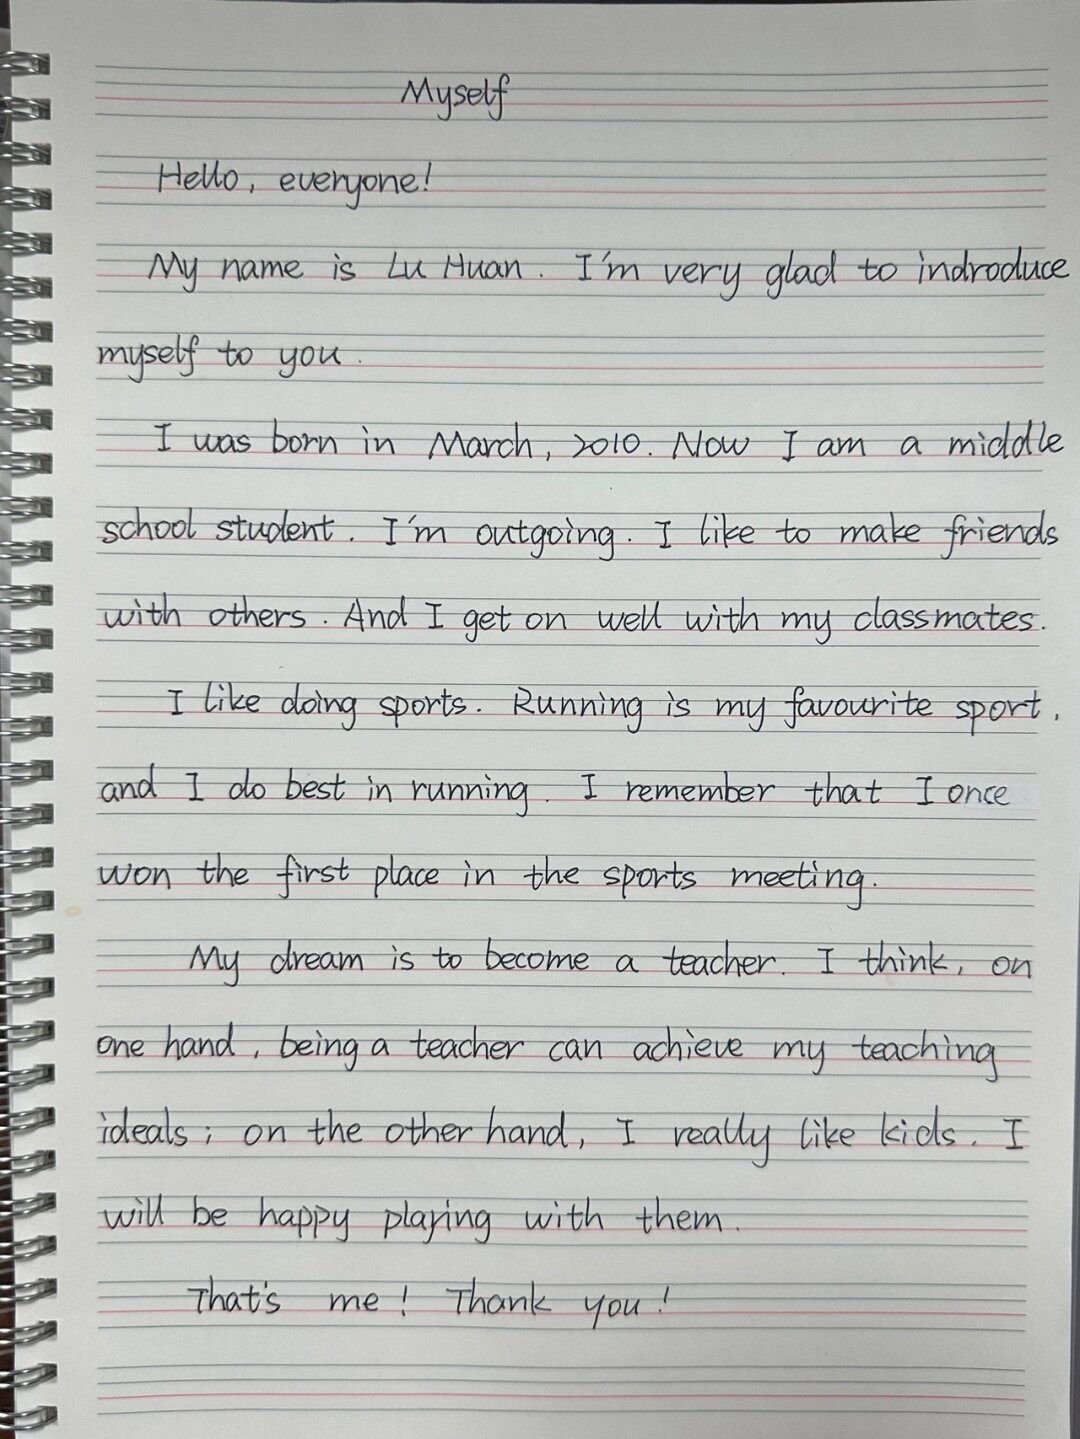 Myself
Hello, everyone!
My name is Lu Huan. I'm very glad to indroduce
myself to you.
I was born in March, 2010. Now I am a middle
school student. I'm outgoing. I like to make friends
with others. And I get on well with my classmates.
I like doing sports. Running is my favourite sport,
and I do best in running. I remember that I once
won the first place in the sports meeting.
My dream is to become a teacher. I think, on
one hand, being a teacher can achieve my teaching
ideals; on the other hand, I really like kids. I
will be happy playing with them.
That's me! Thank you!